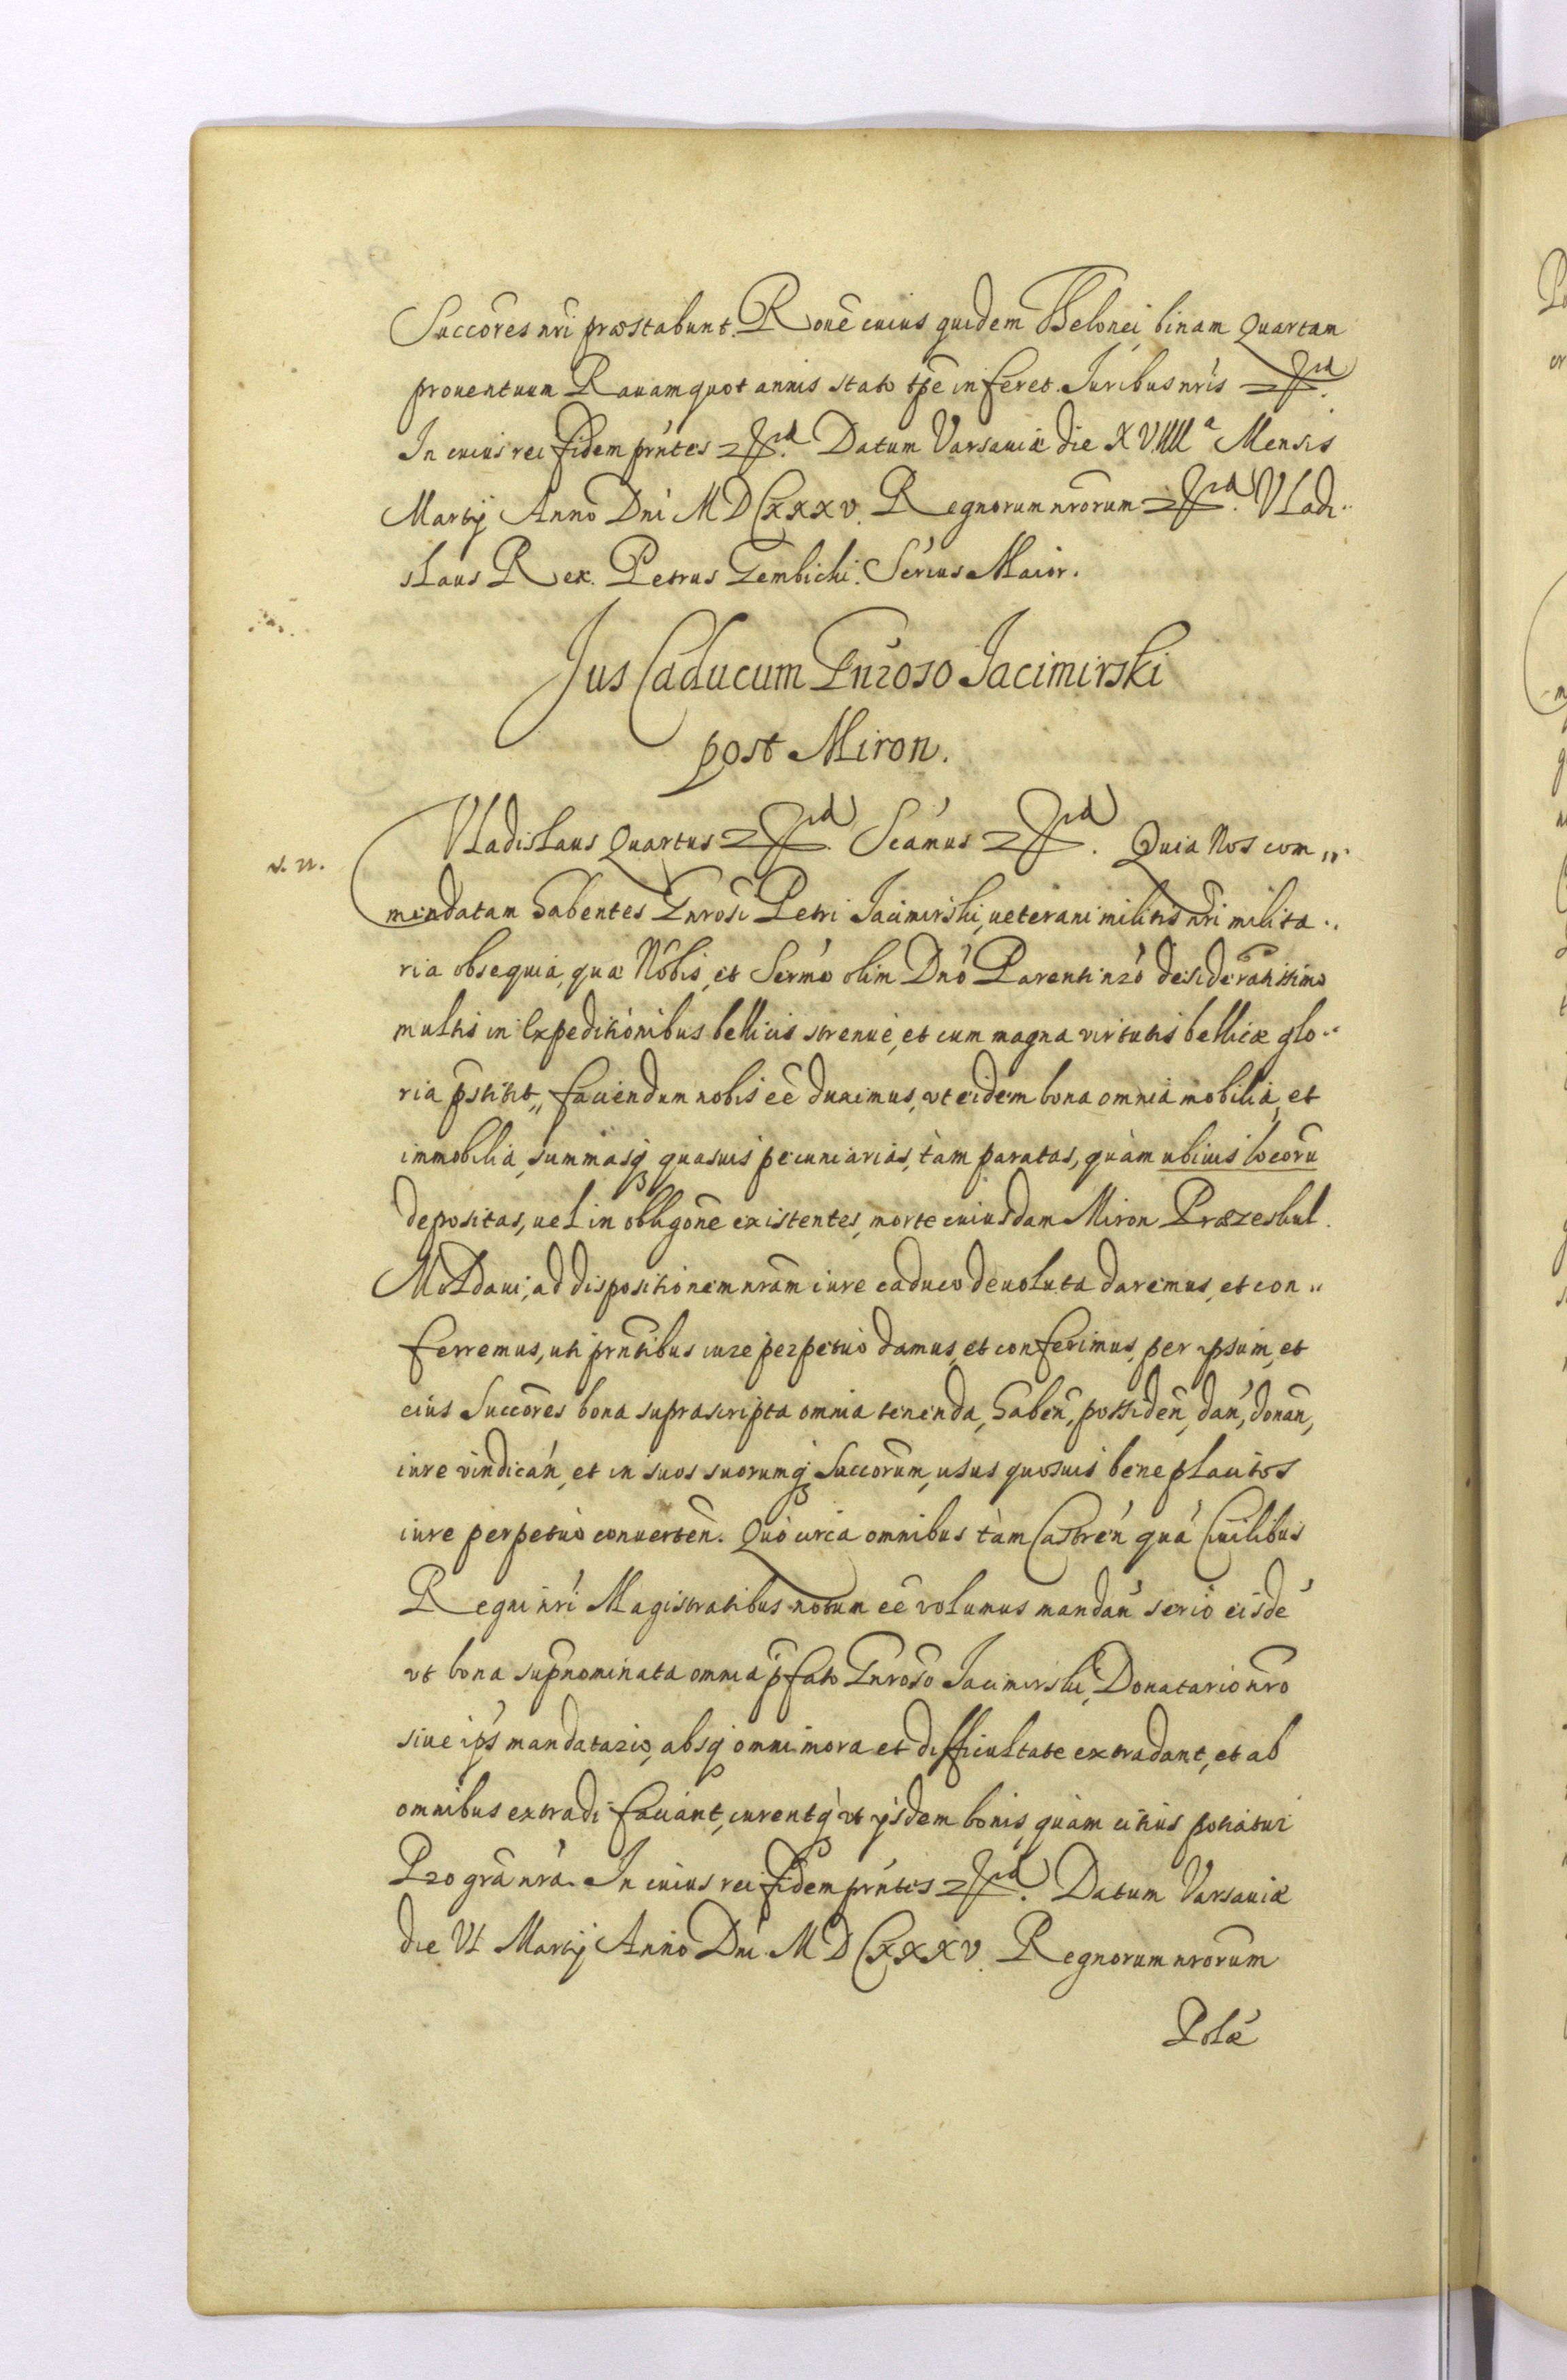 Succores nri præstabunt. Rone cuius quidem Thelonei binam Quartam
prouentuum Rauam quot annis stato tpe inferet. Iuribus nris etc.
In cuius rei fidem pntes etc. Datum Varsauiæ die XVIIII a Mensis
Martij Anno Dni MDCXXXV. Regnorum nrorum etc. Vladi-
slaus Rex. Petrus Gembicki. Secrius Maior.
Jus Caducum Gnroso Jacimirski
post Miron.
s. n.
Vladislaus Quartus etc. Scamus etc. Quia Nos com-
mendatam habentes Gnrosi Petri Jacimirski, ueterani militis nri milita-
ria obsequia, quæ Nobis, et Sermo olim Dno Parenti nro desideratissimo
multis in Expeditionibus bellicis strenue, et cum magna virtutis bellicæ glo-
ria pstitit, faciendum nobis ee duximus, vt eidem bona omnia mobilia, et
immobilia, summasq quasuis pecuniarias, tàm paratas, quàm ubiuis locoru
depositas, uel in obligone existentes, morte cuiusdam Miron Præzeskul
Moldaui, ad dispositionem nram iure caduco deuoluta daremus, et con-
ferremus, uti pntibus iure perpetuo damus, et conferimus, per ipsum, et
eius Succores bona suprascripta omnia tenenda, haben, possiden, dan, donan,
iure vindican, et in suos suorumq Succorum, usus quosuis beneplacitos
iure perpetuo conuerten. Quò circa omnibus tàm Castren quà Ciuilibus
Regni nri Magistratibus notum ee volumus mandan serio eisde
vt bona supnominata omnia pfato Gnroso Jacimirski, Donatario nro
siue ips mandatario, absq omni mora et difficultate extradant, et ab
omnibus extradi faciant, curentq vt ijsdem bonis, quàm citius potiatur
Pro gra nra. In cuius rei fidem pntes etc. Datum Varsauiæ
die VI Martij Anno Dni MDCXXXV. Regnorum nrorum
Polæ